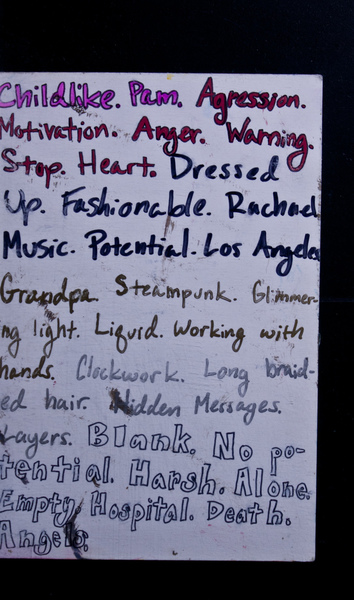 Childlike. Pam. Agression.
Motivation. Anger. Warning.
Stop. Heart. Dressed
Up. Fashionable. Rachael
Music. Potential. Los Angeles
Grandpa. Steampunk. Glimmer-
ng light. Liquid. Working with
hands. Clockwork. Long braid-
ed hair. Hidden Messages.
Layers. Blank. No po-
tential. Harsh. Alone.
Empty. Hospital. Death.
Angels.